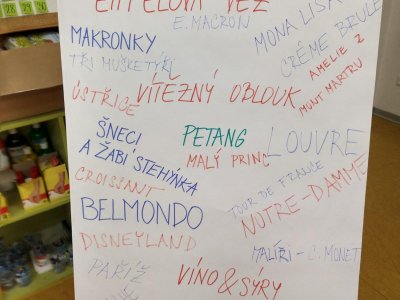 EIFFELOVA VĚŽ
E. MACRON
MONA LISA
MAKRONKY
CRÉME BRULÉ
TŘI MUŠKETÝŘI
AMELIE Z
MUNT MARTRU
ÚSTŘICE
VÍTEZNÝ OBLOUK
ŠNECI
A ŽABÍ STEHÝNKA
PETANG
MALÝ PRINC
LOUVRE
CROISSANT
TOUR DE FRANCE
NOTRE-DAMME
BELMONDO
DISNEYLAND
MALÍŘI - C. MONET
PAŘÍŽ
VÍNO & SÝRY